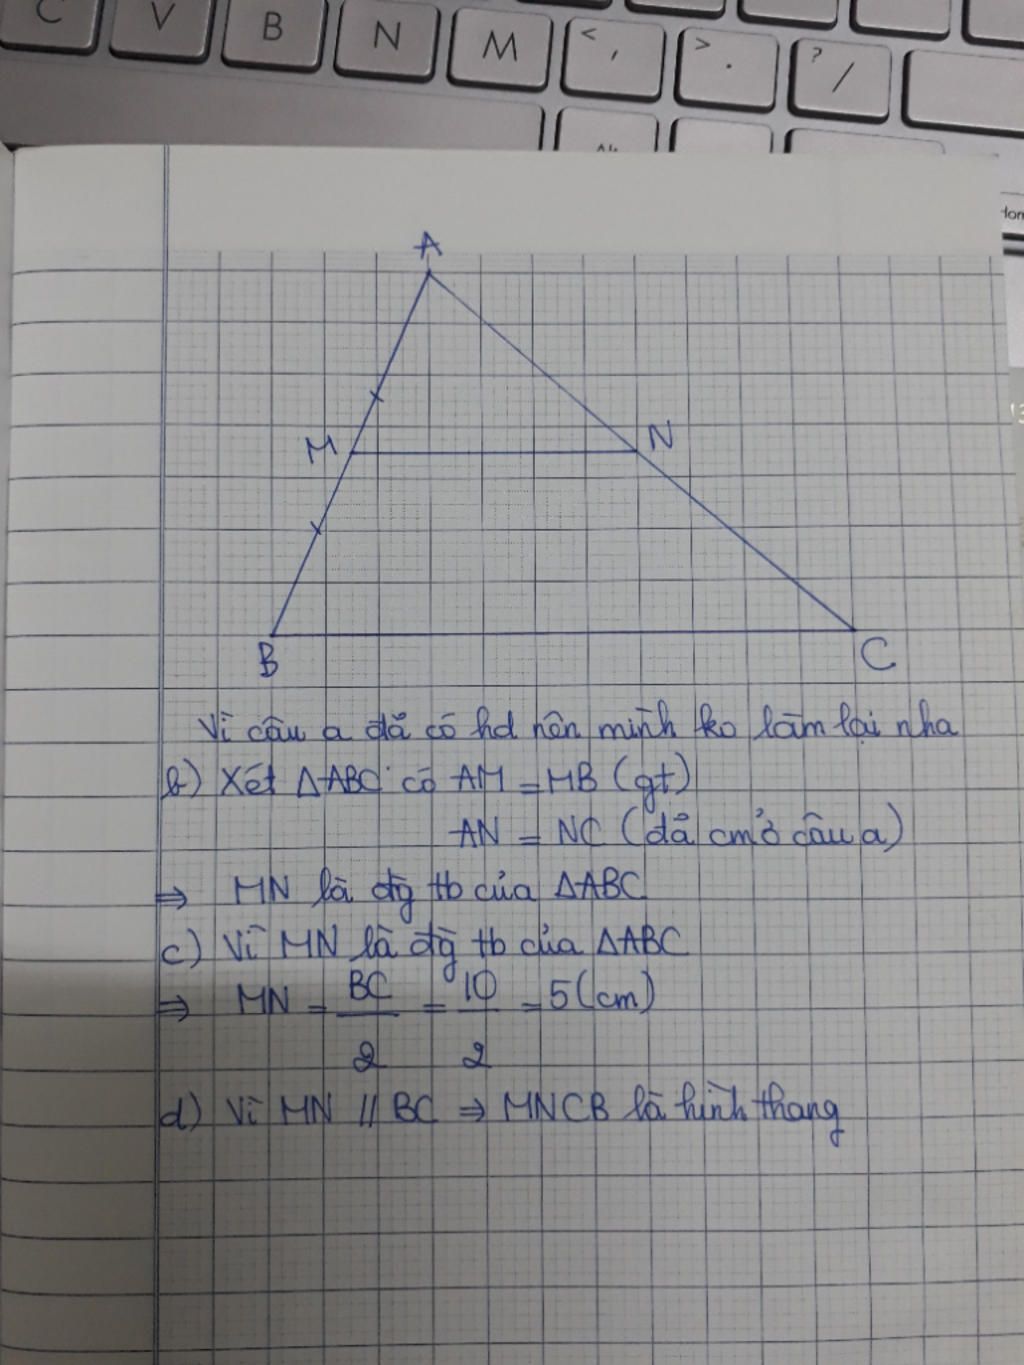 C V B N M < , > . ? /
A
M N
B C
Vì câu a đã có hd nên mình ko làm lại nha
b) Xét ΔABC có AM = MB (gt)
AN = NC (đã cm ở câu a)
⇒ MN là đg tb của ΔABC
c) Vì MN là đg tb của ΔABC
⇒ MN = BC/2 = 10/2 = 5 (cm)
d) Vì MN // BC ⇒ MNCB là hình thang